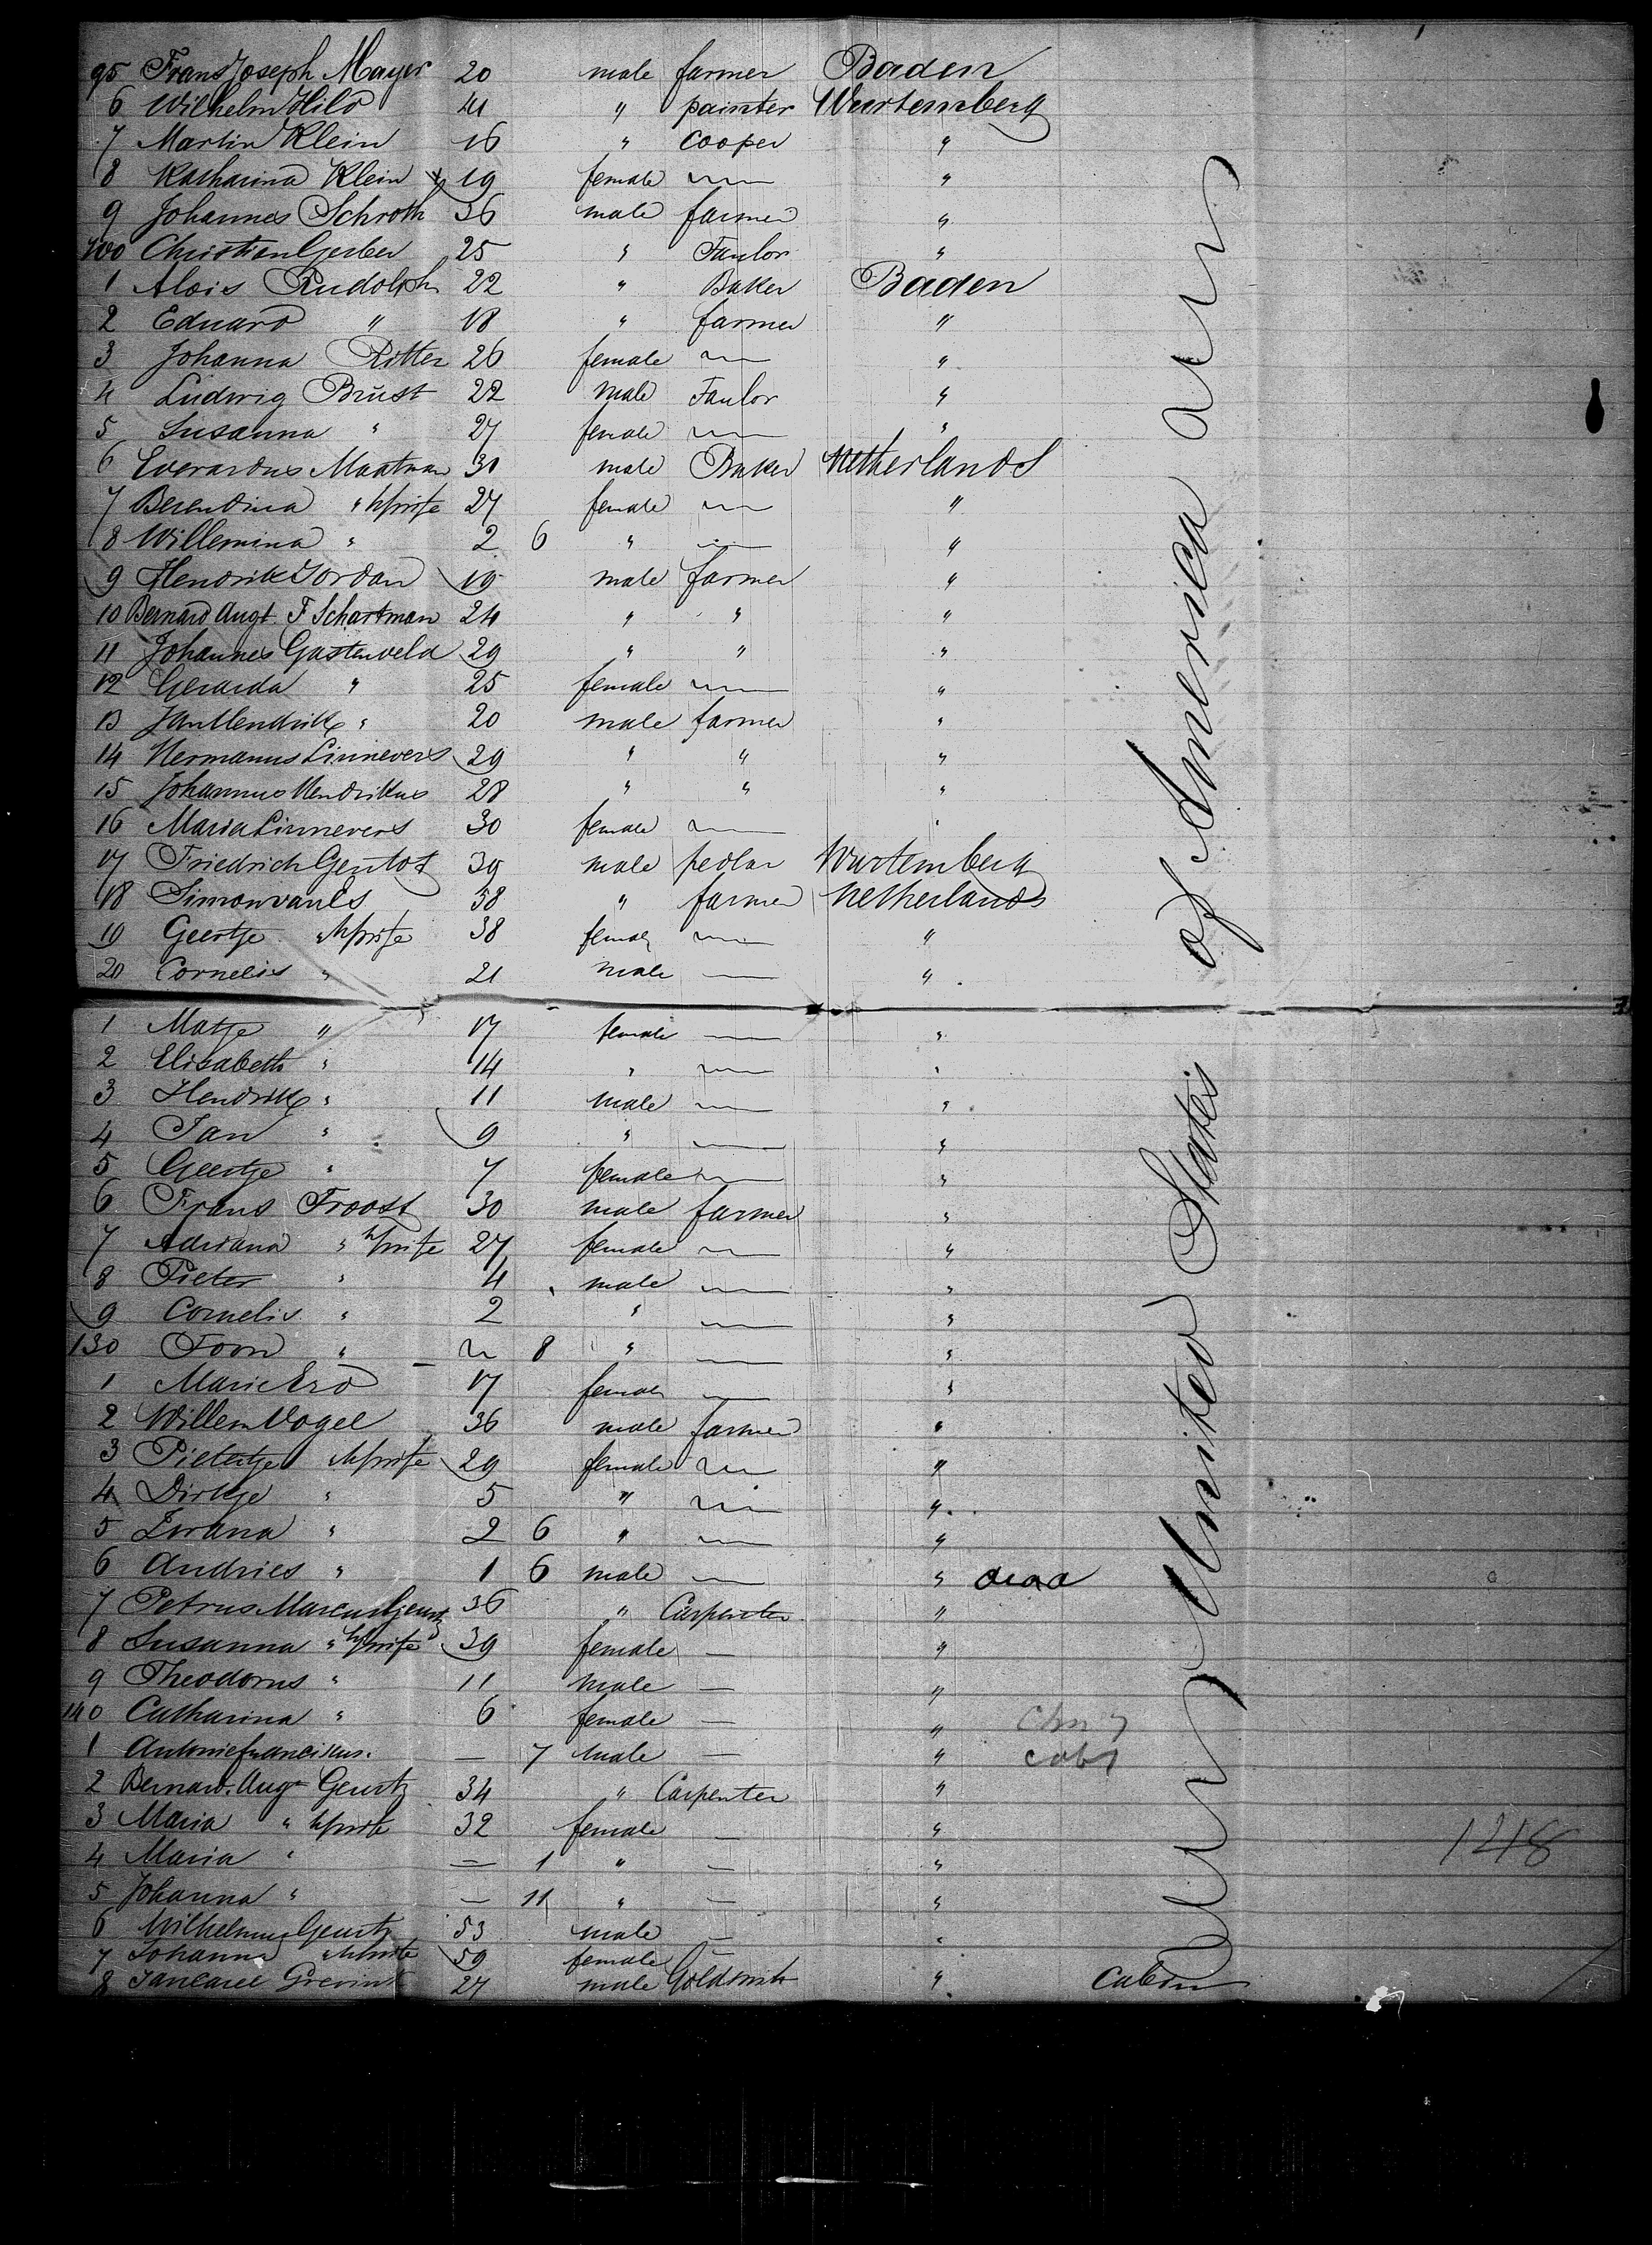 95 Frans Joseph Mayer 20 male farmer Baden
6 Wilhelm Hild 41 " painter Wurtemberg
7 Martin Klein 16 " cooper "
8 Katharina Klein 19 female "
9 Johannes Schroth 36 male farmer "
100 Christian Gerber 25 " Taylor "
1 Alois Rudolph 22 " Baker Baden
2 Eduard " 18 " farmer "
3 Johanna Ritter 26 female "
4 Ludwig Brŭst 22 male Taylor "
5 Susanna " 27 female "
6 Everardus Maatman 30 male Baker Netherlands
7 Berendina " h/wife 27 female "
8 Willemina " 2 6 " "
9 Hendrik Jordan 19 male farmer "
10 Bernard Augt. F Schartman 24 " " "
11 Johannes Gastenveld 29 " " "
12 Gerarda " 25 female "
13 Jan Hendrik " 20 male farmer "
14 Hermanus Linnevers 29 " " "
15 Johannus Hendrikus 28 " " "
16 Maria Linnevers 30 female "
17 Friedrich 39 male pedlar Wurtemberg
18 Simon van Es 38 " farmer Netherlands
19 Geertje " h/wife 38 female "
20 Cornelis " 21 male "
1 Matje " 17 female "
2 Elisabeth " 14 " "
3 Hendrik " 11 male "
4 Jan " 9 " "
5 Geertje " 7 female "
6 Frans Troost 30 male farmer "
7 Adriana " h/wife 27 female "
8 Pieter " 4 male "
9 Cornelis " 2 " "
130 Toon " 8 " "
1 Marie 17 female "
2 Willem Vogel 36 male farmer "
3 Pietertje " h/wife 29 female "
4 Dirkje " 5 " "
5 " 2 6 " "
6 Andries " 1 6 male " dead
7 Petrus Marcus Geurtz 36 " Carpenter "
8 Susanna " h/wife 39 female "
9 Theodorus " 11 male "
140 Catharina " 6 female "
1 Antonie franciskus. — 7 male — "
2 Bernard. Augt Geurtz 34 " Carpenter "
3 Maria " h/wife 32 female "
4 Maria " — 1 " — "
5 Johanna " — 11 " — "
6 Wilhelmus Geurtz 53 male — "
7 Johanna " h/wife 59 female —
8 Jan Carel Grevink 27 male Goldsmith " Cabin
United States of America
1218